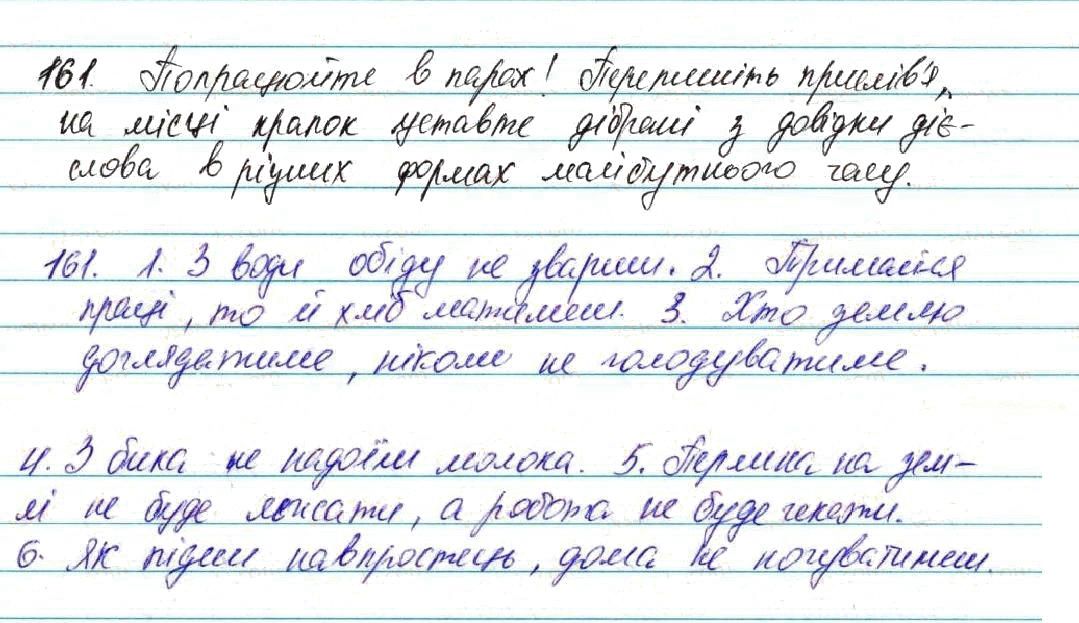 161. Попрацюйте в парах! Перепишіть прислів'я,
на місці крапок уставте дібрані з довідки діє-
слова в різних формах майбутнього часу.
161. 1. З води обіду не звариш. 2. Тримайся
праці, то й хліб матимеш. 3. Хто землю
доглядатиме, ніколи не голодуватиме.
4. З бика не надоїш молока. 5. Перлина на зем-
лі не буде лежати, а робота не буде чекати.
6. Як підеш навпростець, дома не ночуватимеш.